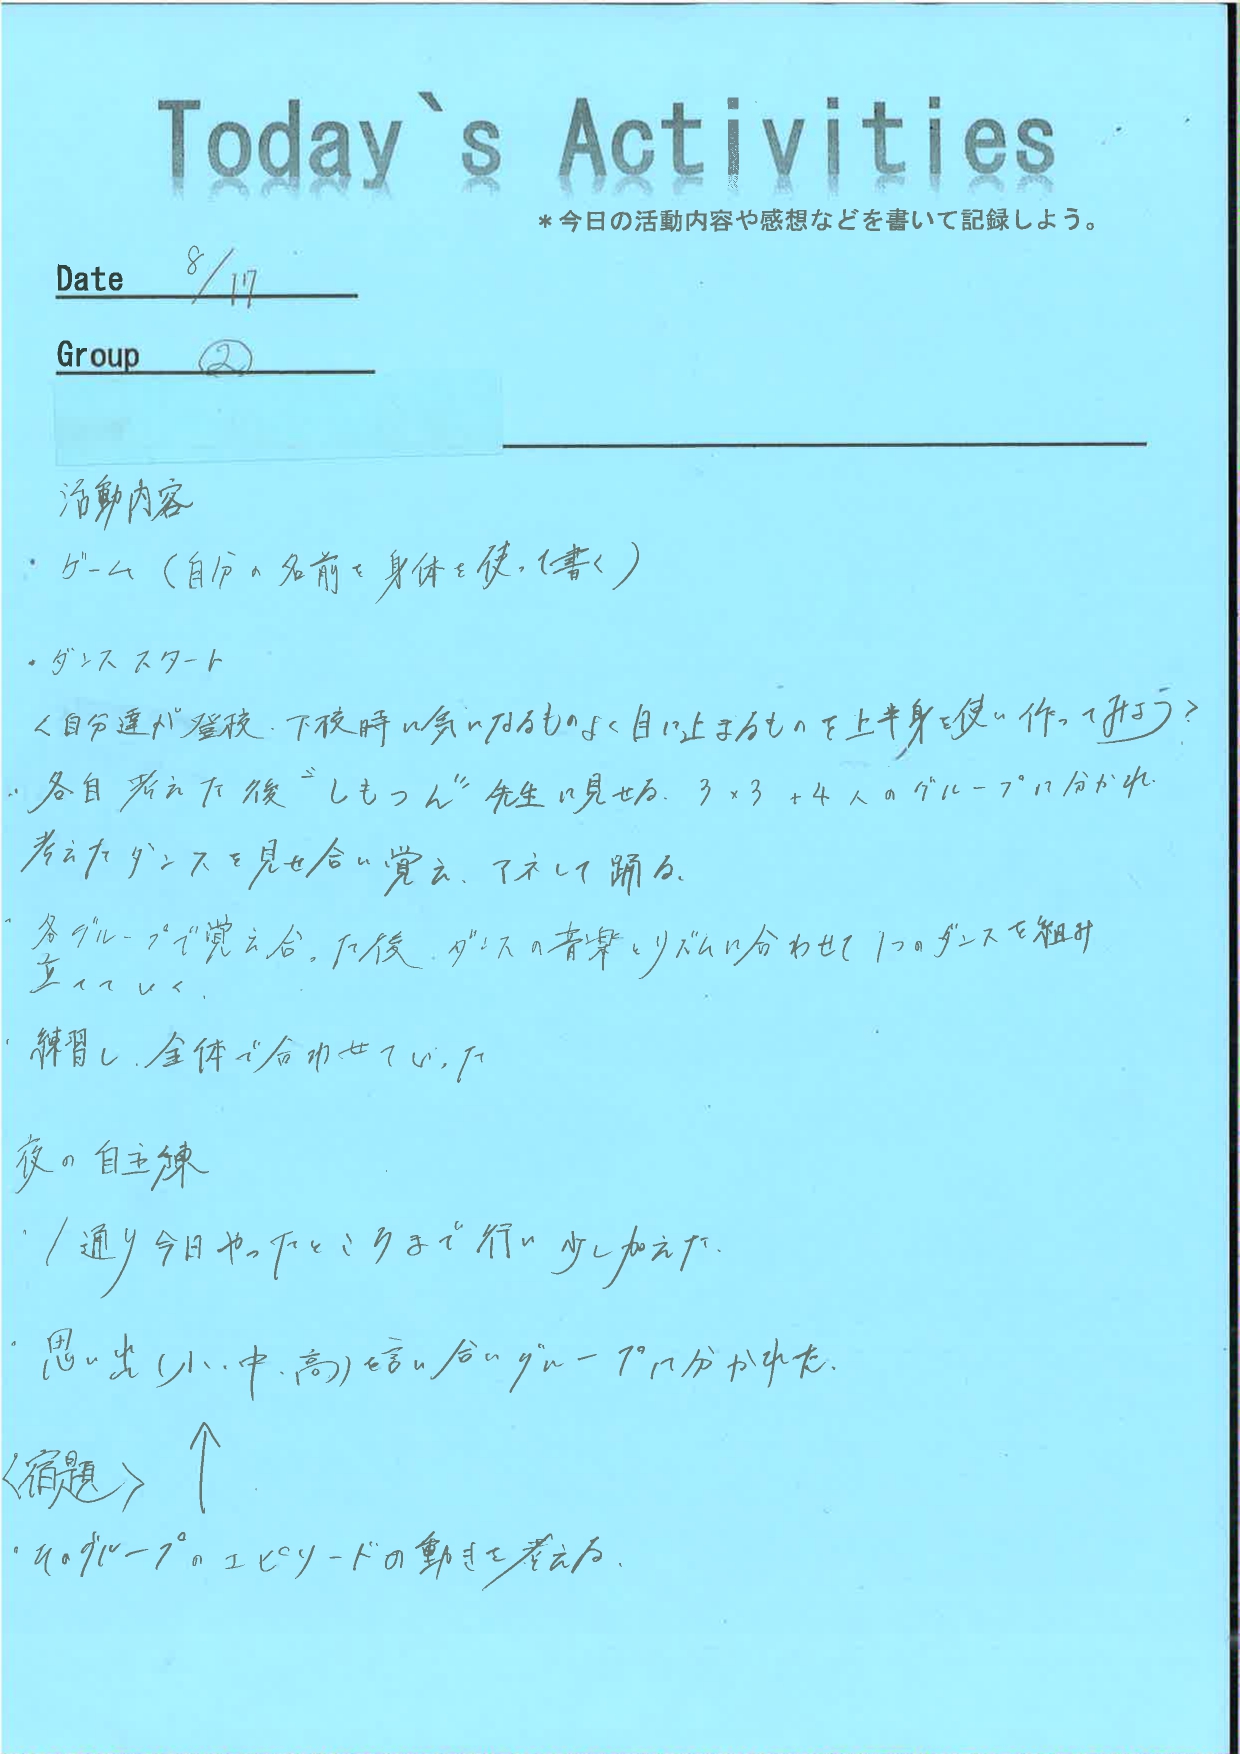 Today`s Activities
＊今日の活動内容や感想などを書いて記録しよう。
Date 8/17
Group ②
活動内容
・ゲーム (自分の名前を身体を使って書く)
・ダンススタート
く自分達が登校、下校時に気になるものよく目に止まるものを上半身を使い作ってみよう?
・各自考えた後〝しもつん〟先生に見せる。3×3+4人のグループに分かれ
考えたダンスを見せ合い覚え、マネして踊る。
・各グループで覚え合った後、ダンスの音楽とリズムに合わせて1つのダンスを組み
立てていく。
・練習し、全体で合わせていった
夜の自主練
・1通り今日やったところまで行い少し加えた。
・思い出(小、中、高)を言い合いグループに分かれた。
↑
〈宿題〉
・そのグループのエピソードの動きを考える。